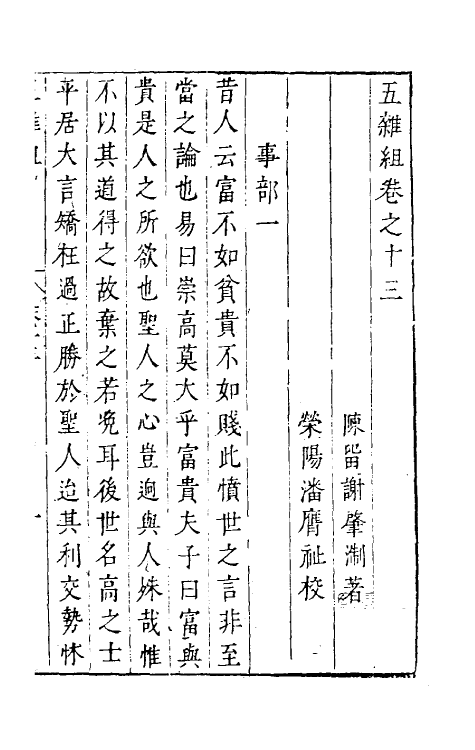 五雜組卷之十三
陳留謝肇淛著
榮陽潘膺祉校
事部一
昔人云富不如貧貴不如賤此憤世之言非至
當之論也易曰崇高莫大乎富貴夫子曰富與
貴是人之所欲也聖人之心豈逈與人殊哉惟
不以其道得之故棄之若浼耳後世名高之士
平居大言矯枉過正勝於聖人迨其利交勢怵